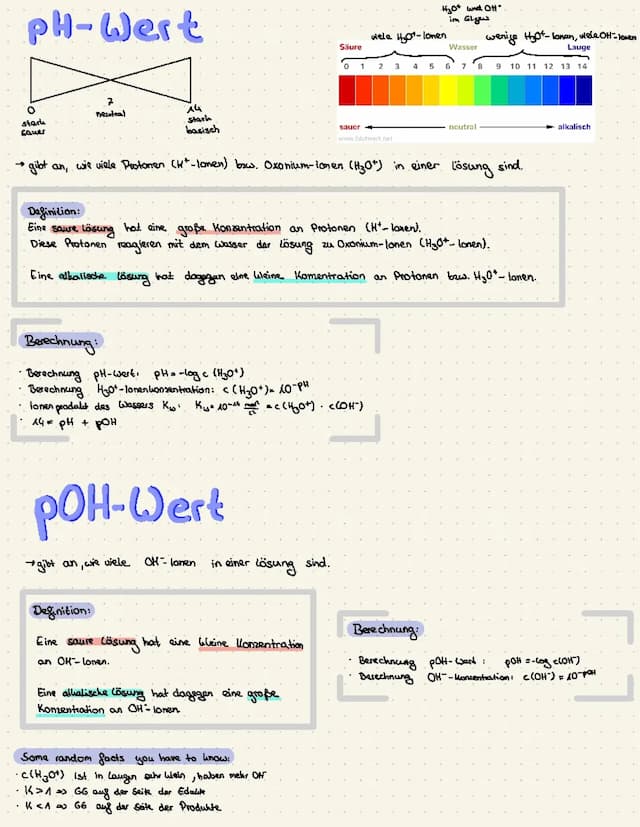 pH-Wert
H₃O⁺ und OH⁻
im Glgw
viele H₃O⁺-Ionen
wenige H₃O⁺-Ionen, viele OH⁻-Ionen
Säure Wasser Lauge
0 1 2 3 4 5 6 7 8 9 10 11 12 13 14
sauer neutral alkalisch
0 7 14
stark sauer
neutral
stark basisch
→ gibt an, wie viele Protonen (H⁺-Ionen) bzw. Oxonium-Ionen (H₃O⁺) in einer Lösung sind.
Definition:
Eine saure Lösung hat eine große Konzentration an Protonen (H⁺-Ionen).
Diese Protonen reagieren mit dem Wasser der Lösung zu Oxonium-Ionen (H₃O⁺-Ionen).
Eine alkalische Lösung hat dagegen eine kleine Konzentration an Protonen bzw. H₃O⁺-Ionen.
Berechnung:
· Berechnung pH-Wert: pH = -log c (H₃O⁺)
· Berechnung H₃O⁺-Ionenkonzentration: c (H₃O⁺) = 10⁻ᵖᴴ
· Ionenprodukt des Wassers Kw: Kw = 10⁻¹⁴ mol²/L² = c (H₃O⁺) · c(OH⁻)
· 14 = pH + pOH
pOH-Wert
→ gibt an, wie viele OH⁻-Ionen in einer Lösung sind.
Definition:
Eine saure Lösung hat eine kleine Konzentration
an OH⁻-Ionen.
Eine alkalische Lösung hat dagegen eine große
Konzentration an OH⁻-Ionen
Berechnung:
· Berechnung pOH-Wert: pOH = -log c(OH⁻)
· Berechnung OH⁻-Konzentration: c(OH⁻) = 10⁻ᵖᴼᴴ
Some random facts you have to know:
· c(H₃O⁺) ist in Laugen sehr klein, haben mehr OH⁻
· K > 1 => GG auf der Seite der Edukte
· K < 1 => GG auf der Seite der Produkte